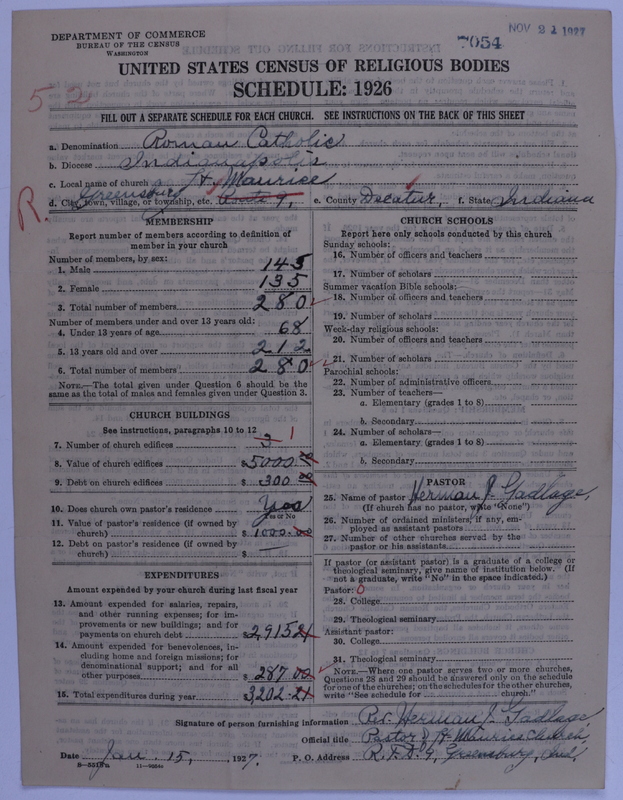 DEPARTMENT OF COMMERCE
BUREAU OF THE CENSUS
WASHINGTON
7054
NOV 21 1927
UNITED STATES CENSUS OF RELIGIOUS BODIES
SCHEDULE: 1926
52
FILL OUT A SEPARATE SCHEDULE FOR EACH CHURCH. SEE INSTRUCTIONS ON THE BACK OF THIS SHEET
a. Denomination Roman Catholic
b. Diocese Indianapolis
c. Local name of church St. Maurice
Greensburg
R.
d. City, town, village, or township, etc.
e. County Decatur, f. State Indiana
MEMBERSHIP
Report number of members according to definition of member in your church
Number of members, by sex:
1. Male 145
2. Female 135
3. Total number of members 280
Number of members under and over 13 years old:
4. Under 13 years of age 68
5. 13 years old and over 212
6. Total number of members 280
NOTE.—The total given under Question 6 should be the
same as the total of males and females given under Question 3.
CHURCH BUILDINGS
See instructions, paragraphs 10 to 12
7. Number of church edifices 3 1
8. Value of church edifices $5000.00
9. Debt on church edifices $300.00
10. Does church own pastor's residence Yes
Yes or No
11. Value of pastor's residence (if owned by
church) $1000.00
12. Debt on pastor's residence (if owned by
church) $ —
EXPENDITURES
Amount expended by your church during last fiscal year
13. Amount expended for salaries, repairs,
and other running expenses; for im-
provements or new buildings; and for
payments on church debt $2915.21
14. Amount expended for benevolences, in-
cluding home and foreign missions; for
denominational support; and for all
other purposes $287.00
15. Total expenditures during year 3,202.21
CHURCH SCHOOLS
Report here only schools conducted by this church
Sunday schools:
16. Number of officers and teachers
17. Number of scholars
Summer vacation Bible schools:
18. Number of officers and teachers
19. Number of scholars
Week-day religious schools:
20. Number of officers and teachers
21. Number of scholars
Parochial schools:
22. Number of administrative officers
23. Number of teachers—
a. Elementary (grades 1 to 8)
b. Secondary
24. Number of scholars—
a. Elementary (grades 1 to 8)
b. Secondary
PASTOR
25. Name of pastor Herman J. Gadlage,
(If church has no pastor, write "None")
26. Number of ordained ministers, if any, em-
ployed as assistant pastors
27. Number of other churches served by the
pastor or his assistants
If pastor (or assistant pastor) is a graduate of a college or
theological seminary, give name of institution below. (If
not a graduate, write "No" in the space indicated.)
Pastor: 0
28. College
29. Theological seminary
Assistant pastor:
30. College
31. Theological seminary
NOTE.—Where one pastor serves two or more churches,
Questions 28 and 29 should be answered only on the schedule
for one of the churches; on the schedules for the other churches,
write "See schedule for church."
Signature of person furnishing information Rev. Herman J. Gadlage,
Official title Pastor of St. Maurice Church,
Date Jan. 15, 1927. P. O. Address R.F.D. 9, Greensburg, Ind.